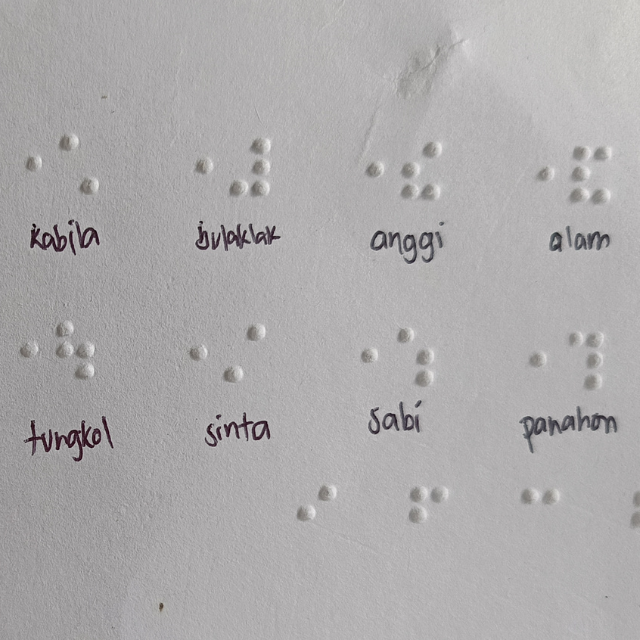 kabila bulaklak anggi alam
tungkol sinta sabi panahon